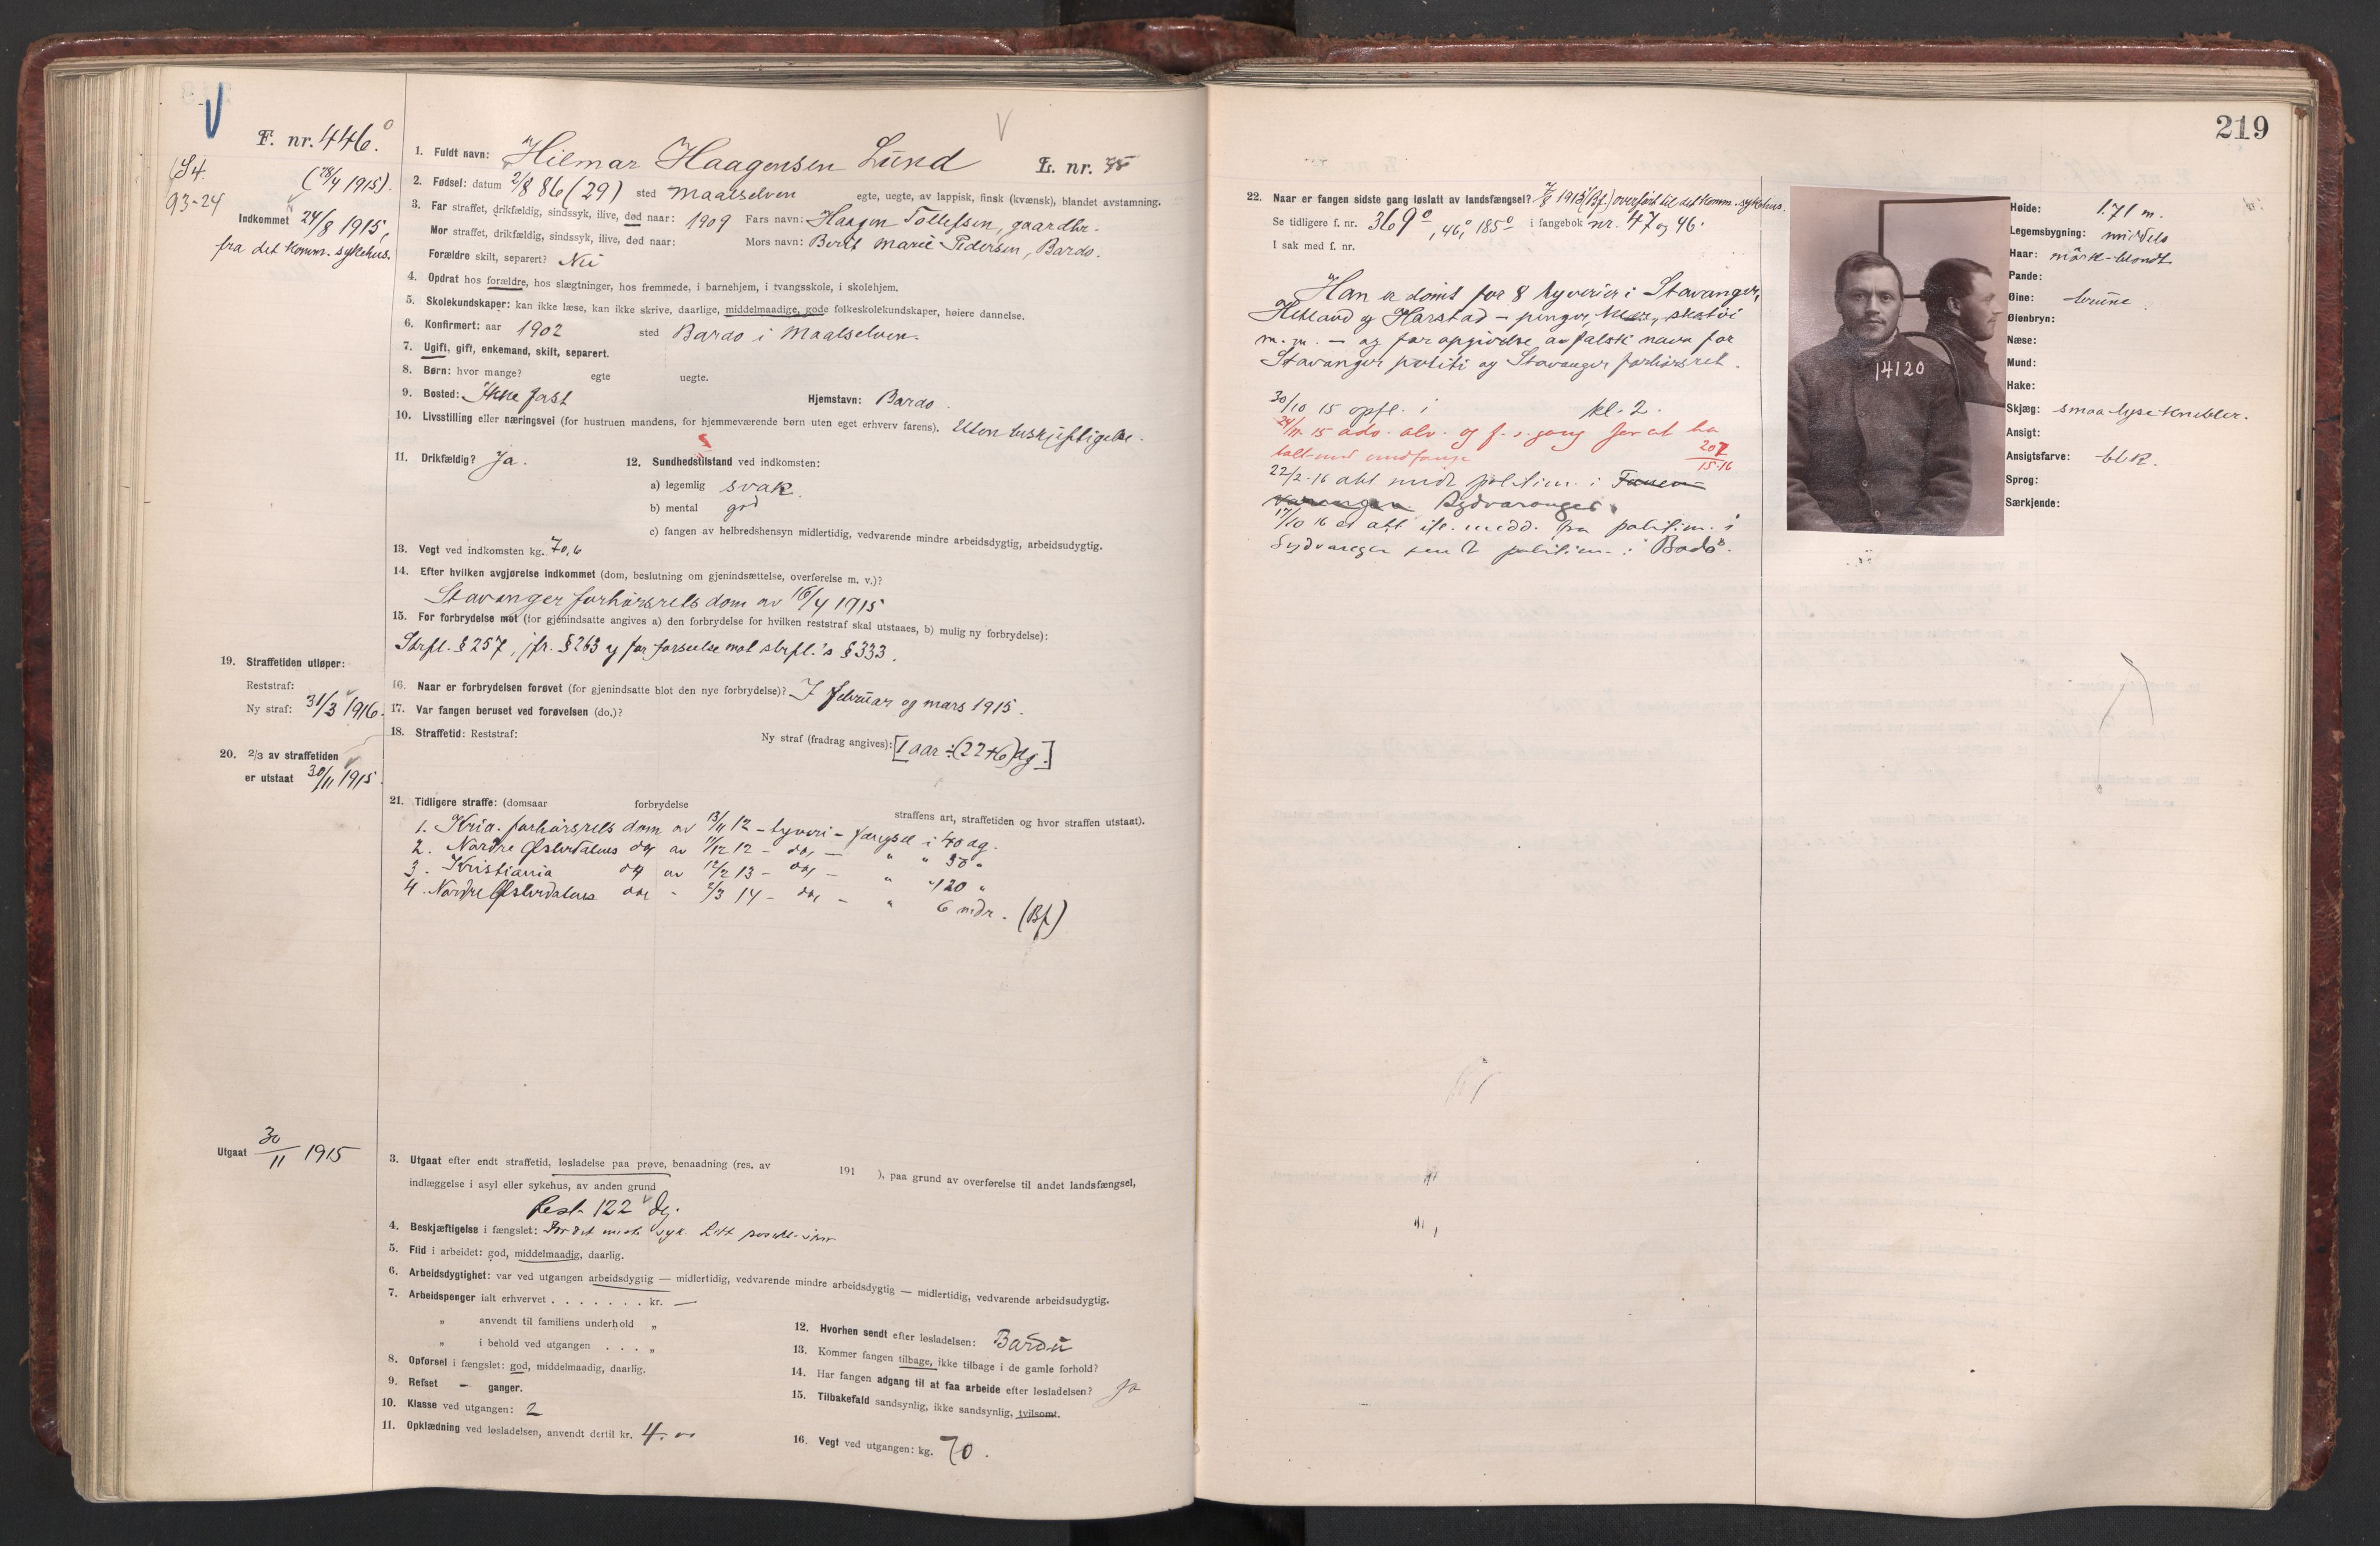 F. nr. 446°
(28/4 1915).
St.
93-24
Indkommet 24/8 1915,
fra det komm. sykehus.
1. Fuldt navn: Hilmar Haagensen Lund L. nr. 
2. Fødsel: datum 2/8 86 (29) sted Maalselven egte, uegte, av lappisk, finsk (kvænsk), blandet avstamning.
3. Far straffet, drikfældig, sindssyk, ilive, død naar: 1909 Fars navn: Haagen Tollefsen, gaardbr.
Mor straffet, drikfældig, sindssyk, ilive, død naar: Mors navn: Berit Marie Pedersen, Bardo.
Forældre skilt, separert? Nei
4. Opdrat hos forældre, hos slægtninger, hos fremmede, i barnehjem, i tvangsskole, i skolehjem.
5. Skolekundskaper: kan ikke læse, kan ikke skrive, daarlige, middelmaadige, gode folkeskolekundskaper, høiere dannelse.
6. Konfirmert: aar 1902 sted Bardo i Maalselven.
7. Ugift, gift, enkemand, skilt, separert.
8. Børn: hvor mange? egte uegte.
9. Bosted: Ikke fast Hjemstavn: Bardo.
10. Livsstilling eller næringsvei (for hustruen mandens, for hjemmeværende børn uten eget erhverv farens). Uten beskjeftigelse.
11. Drikfældig? Ja. 12. Sundhedstilstand ved indkomsten:
a) legemlig svak.
b) mental god
c) fangen av helbredshensyn midlertidig, vedvarende mindre arbeidsdygtig, arbeidsudygtig.
13. Vegt ved indkomsten kg. 70,6
14. Efter hvilken avgjørelse indkommet (dom, beslutning om gjenindsættelse, overførelse m. v.)?
Stavanger forhørsrets dom av 16/4 1915
15. For forbrydelse mot (for gjenindsatte angives a) den forbrydelse for hvilken reststraf skal utstaaes, b) mulig ny forbrydelse):
Strfl. § 257, jfr. § 263 og for forseelse mot strfl.'s § 333.
16. Naar er forbrydelsen forøvet (for gjenindsatte blot den nye forbrydelse)? I februar og mars 1915.
17. Var fangen beruset ved forøvelsen (do.)?
18. Straffetid: Reststraf: Ny straf (fradrag angives): [1 aar ÷ (22+6) dg.]
19. Straffetiden utløper:
Reststraf:
Ny straf: 31/3 1916.
20. 2/3 av straffetiden
er utstaat 30/11 1915.
21. Tidligere straffe: (domsaar forbrydelse straffens art, straffetiden og hvor straffen utstaat).
1. Kria. forhørsrets dom av 13/11 12 - tyveri - fængsel i 40 dg.
2. Nordre Østerdalens do, av 11/12 12 - do, - " " 30 "
3. Kristiania do, av 12/2 13 - do, - " " 120 "
4. Nordre Østerdalens do, " 2/3 14 - do, - " 6 mdr. (Bf)
Utgaat 30/11 1915
3. Utgaat efter endt straffetid, løsladelse paa prøve, benaadning (res. av 191 ), paa grund av overførelse til andet landsfængsel,
indlæggelse i asyl eller sykehus, av anden grund
Rest 122 dg.
4. Beskjæftigelse i fængslet: syk. Litt
5. Flid i arbeidet: god, middelmaadig, daarlig.
6. Arbeidsdygtighet: var ved utgangen arbeidsdygtig — midlertidig, vedvarende mindre arbeidsdygtig — midlertidig, vedvarende arbeidsudygtig.
7. Arbeidspenger ialt erhvervet . . . . . . . kr. —
" anvendt til familiens underhold "
" i behold ved utgangen . . . "
8. Opførsel i fængslet: god, middelmaadig, daarlig.
9. Refset — ganger.
10. Klasse ved utgangen: 2
11. Opklædning ved løsladelsen, anvendt dertil kr. 4.
12. Hvorhen sendt efter løsladelsen: Bardu
13. Kommer fangen tilbage, ikke tilbage i de gamle forhold?
14. Har fangen adgang til at faa arbeide efter løsladelsen? Ja
15. Tilbakefald sandsynlig, ikke sandsynlig, tvilsomt.
16. Vegt ved utgangen: kg. 70.
219
22. Naar er fangen sidste gang løslatt av landsfængsel? 1915 (Bf.) overført til det komm. sykehus.
Se tidligere f. nr. 369°, 46°, 185° i fangebok nr. 47 og 46.
I sak med f. nr.
Han er dømt for 8 tyverier i Stavanger,
Hetland og Harstad - penger, klær, skotøi
m. m. - og for opgivelse av falsk navn for
Stavanger politi og Stavanger forhørsret.
30/10 15 opfl. i kl. 2.
24/11 15 adv. alv. og f. s. gang for at ha
talt med medfange 207/15-16
22/2-16 akt sendt politim. i
Sydvaranger.
17/10 16 er akt ifl. medd. fra politim. i
Sydvaranger sendt politim. i Bodø.
14120
Høide: 1.71 m.
Legemsbygning: middels
Haar: mørk-blondt
Pande:
Øine: brune
Øienbryn:
Næse:
Mund:
Hake:
Skjæg: smaa lyse knebler.
Ansigt:
Ansigtsfarve: blek.
Sprog:
Særkjende: